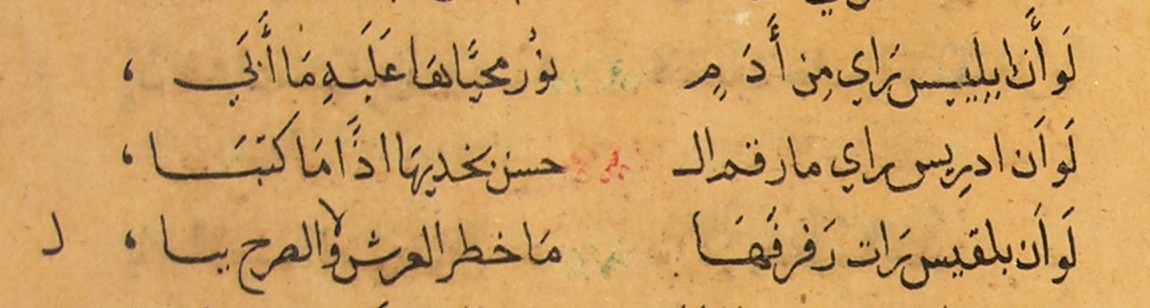 لَو أَن ابليس رَاي مِن أَدَمٍ نوُر محيَّاهَا عَلَيهِ مَا أَبَي ،
لَو اَن ادرِيس راي ما رقم الـ حسن بخديهَا اذًا مَا كتبَـا ،
لَو اَن بلقيس رَات رَفرفَهَا مَا خطر العرش ولا الصرح ببا ، ل